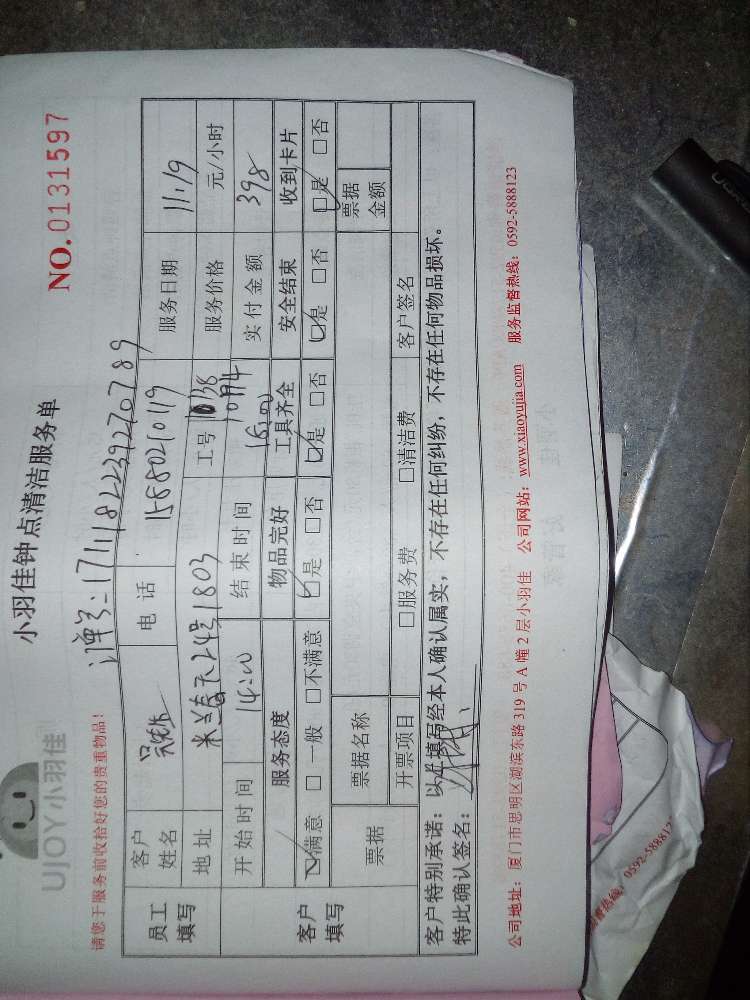 UJOY小羽佳
小羽佳钟点清洁服务单
NO.0131597
请您于服务前收拾好您的贵重物品!
订单号:1711182239270789
员工填写
客户姓名 电话 15880210119 服务日期 11.19
地址 米兰春天24号1803 工号 服务价格 元/小时
客户填写
开始时间 14:00 结束时间 16:00 实付金额 398
服务态度 物品完好 工具齐全 安全结束 收到卡片
☑满意 □一般 □不满意 ☑是 □否 ☑是 □否 ☑是 □否 ☑是 □否
票据 票据名称 票据金额
开票项目 □服务费 □清洁费 客户签名
客户特别承诺:以上填写经本人确认属实,不存在任何纠纷,不存在任何物品损坏。
特此确认签名:
公司地址:厦门市思明区湖滨东路319号A幢2层小羽佳 公司网站:www.xiaoyujia.com 服务监督热线:0592-5888123
督热线:0592-588812